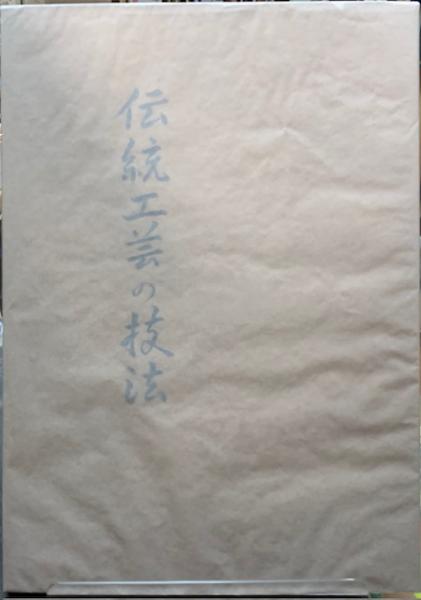 伝統工芸の技法